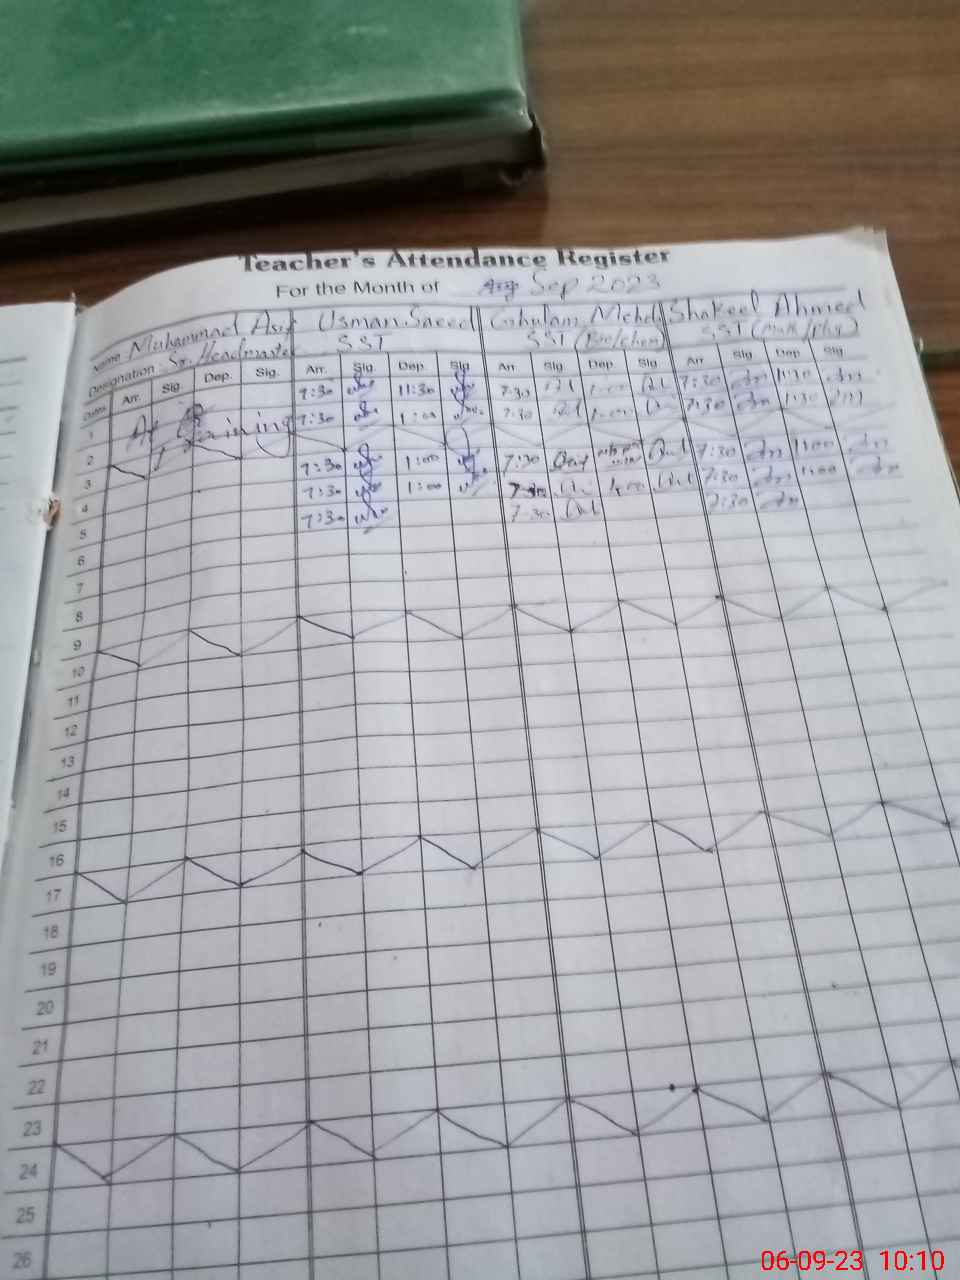 Teacher's Attendance Register
For the Month of Sep 2023
Name Muhammad Asif Usman Saeed Ghulam Mehdi Shakeel Ahmed
Designation: Sr. Headmaster SST SST (Bio/chem) SST (Math/Phy)
Dates Arr. Sig. Dep. Sig. Arr. Sig. Dep. Sig. Arr. Sig. Dep Sig. Arr. Sig. Dep. Sig.
7:30 11:30 7:30 7:30 11:30
1 At Training 7:30 1:00 7:30 1:00 7:30 1:30
2
3 7:30 1:00 7:30 7:30 1:00
4 7:30 1:00 7:30 1:00 7:30 1:00
5 7:30 7:30 7:30
6
7
8
9
10
11
12
13
14
15
16
17
18
19
20
21
22
23
24
25
26
06-09-23 10:10